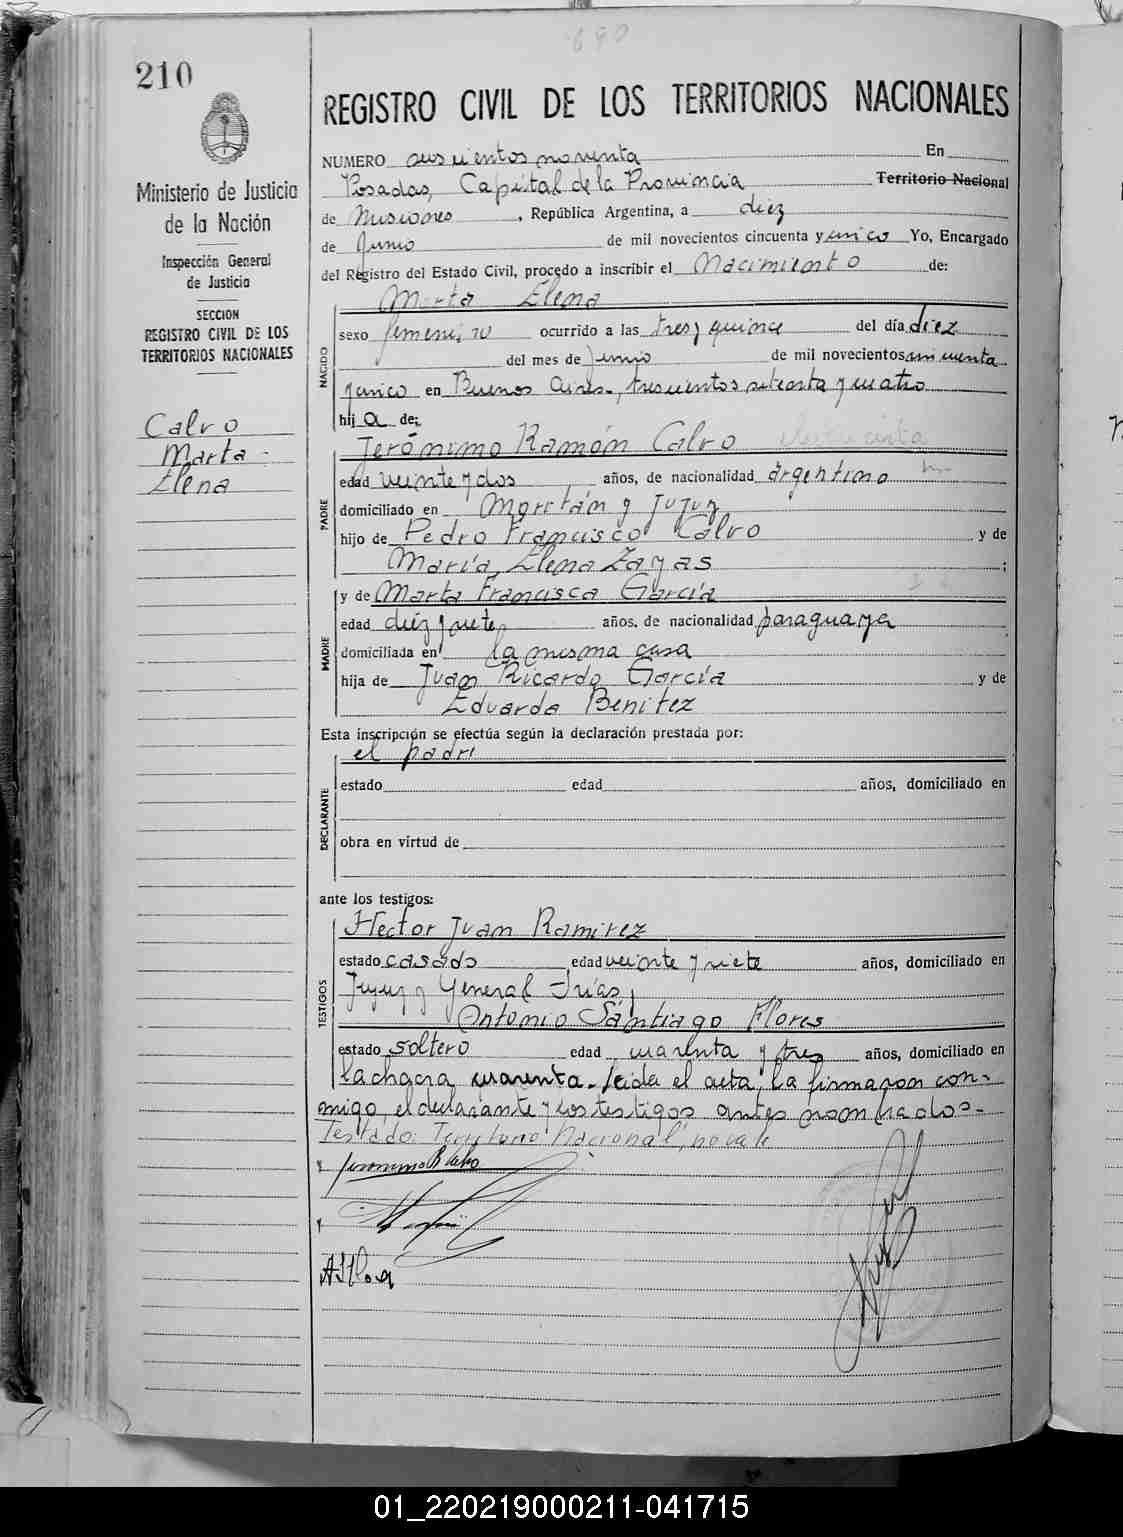 690
210
REGISTRO CIVIL DE LOS TERRITORIOS NACIONALES
Ministerio de Justicia
de la Nación
Inspección General
de Justicia
SECCION
REGISTRO CIVIL DE LOS
TERRITORIOS NACIONALES
Calvo
Marta
Elena
NUMERO seiscientos noventa En
Posadas, Capital de la Provincia Territorio Nacional
de Misiones, República Argentina, a diez
de Junio de mil novecientos cincuenta y cinco Yo, Encargado
del Registro del Estado Civil, procedo a inscribir el Nacimiento de:
NACIDO
Marta Elena
sexo femenino ocurrido a las tres y quince del día diez
del mes de Junio de mil novecientos cincuenta
y cinco en Buenos Aires, trescientos setenta y cuatro
hija de:
PADRE
Jerónimo Ramón Calvo
edad veinte y dos años, de nacionalidad argentino
domiciliado en y Jujuy
hijo de Pedro Francisco Calvo y de
María Elena Zayas ;
MADRE
y de Marta Francisca García
edad diez y siete años, de nacionalidad paraguaya
domiciliada en la misma casa
hija de Juan Ricardo García y de
Eduarda Benitez
Esta inscripción se efectúa según la declaración prestada por:
el padre
DECLARANTE
estado edad años, domiciliado en
obra en virtud de
ante los testigos:
TESTIGOS
Hector Juan Ramirez
estado casado edad veinte y siete años, domiciliado en
Jujuy y General Frías,
Antonio Santiago Flores
estado soltero edad cuarenta y tres años, domiciliado en
la chacra cuarenta. Leida el acta, la firmaron con-
migo, el declarante y los testigos antes nombrados.-
Testado: Territorio Nacional, no vale
Jeronimo R Calvo
01_220219000211-041715